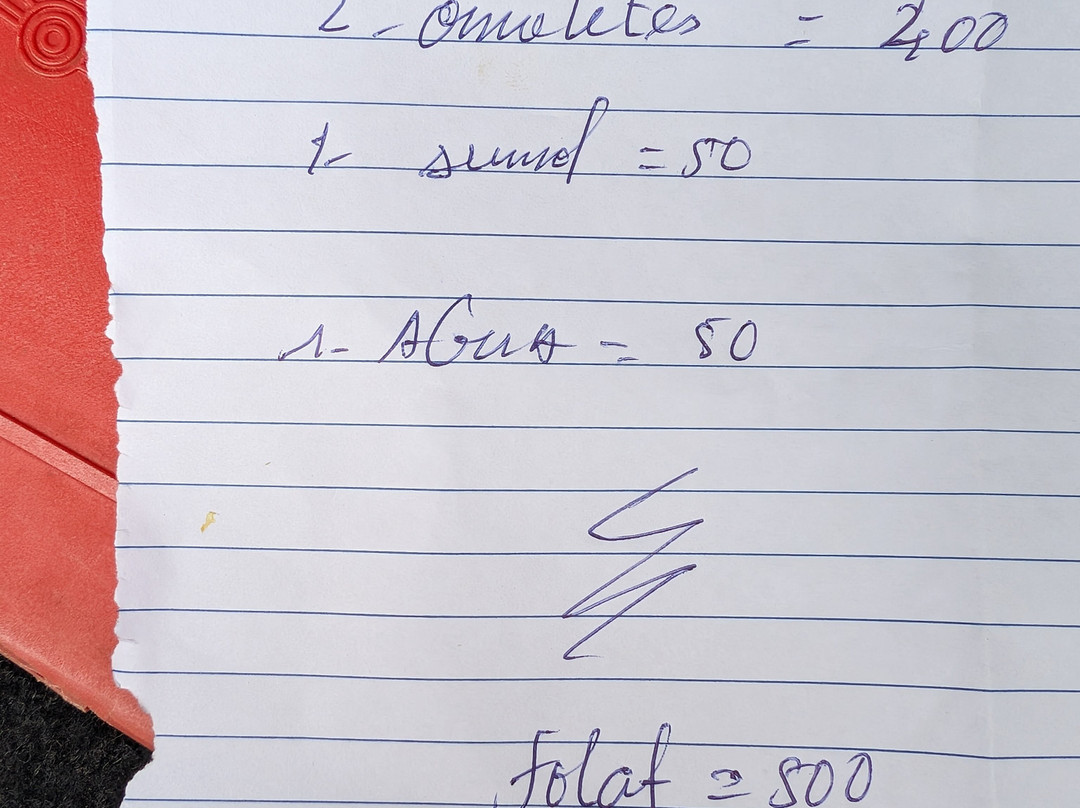 2- omoletes = 400
1- sumol = 50
1- AGUA = 50
total = 500